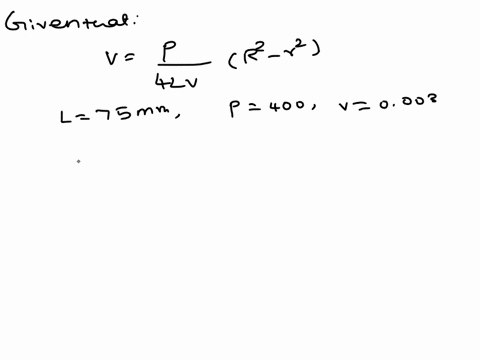 Giventhat:
v = P / 4Lv (R² - r²)
L = 75 mm, P = 400, v = 0.003